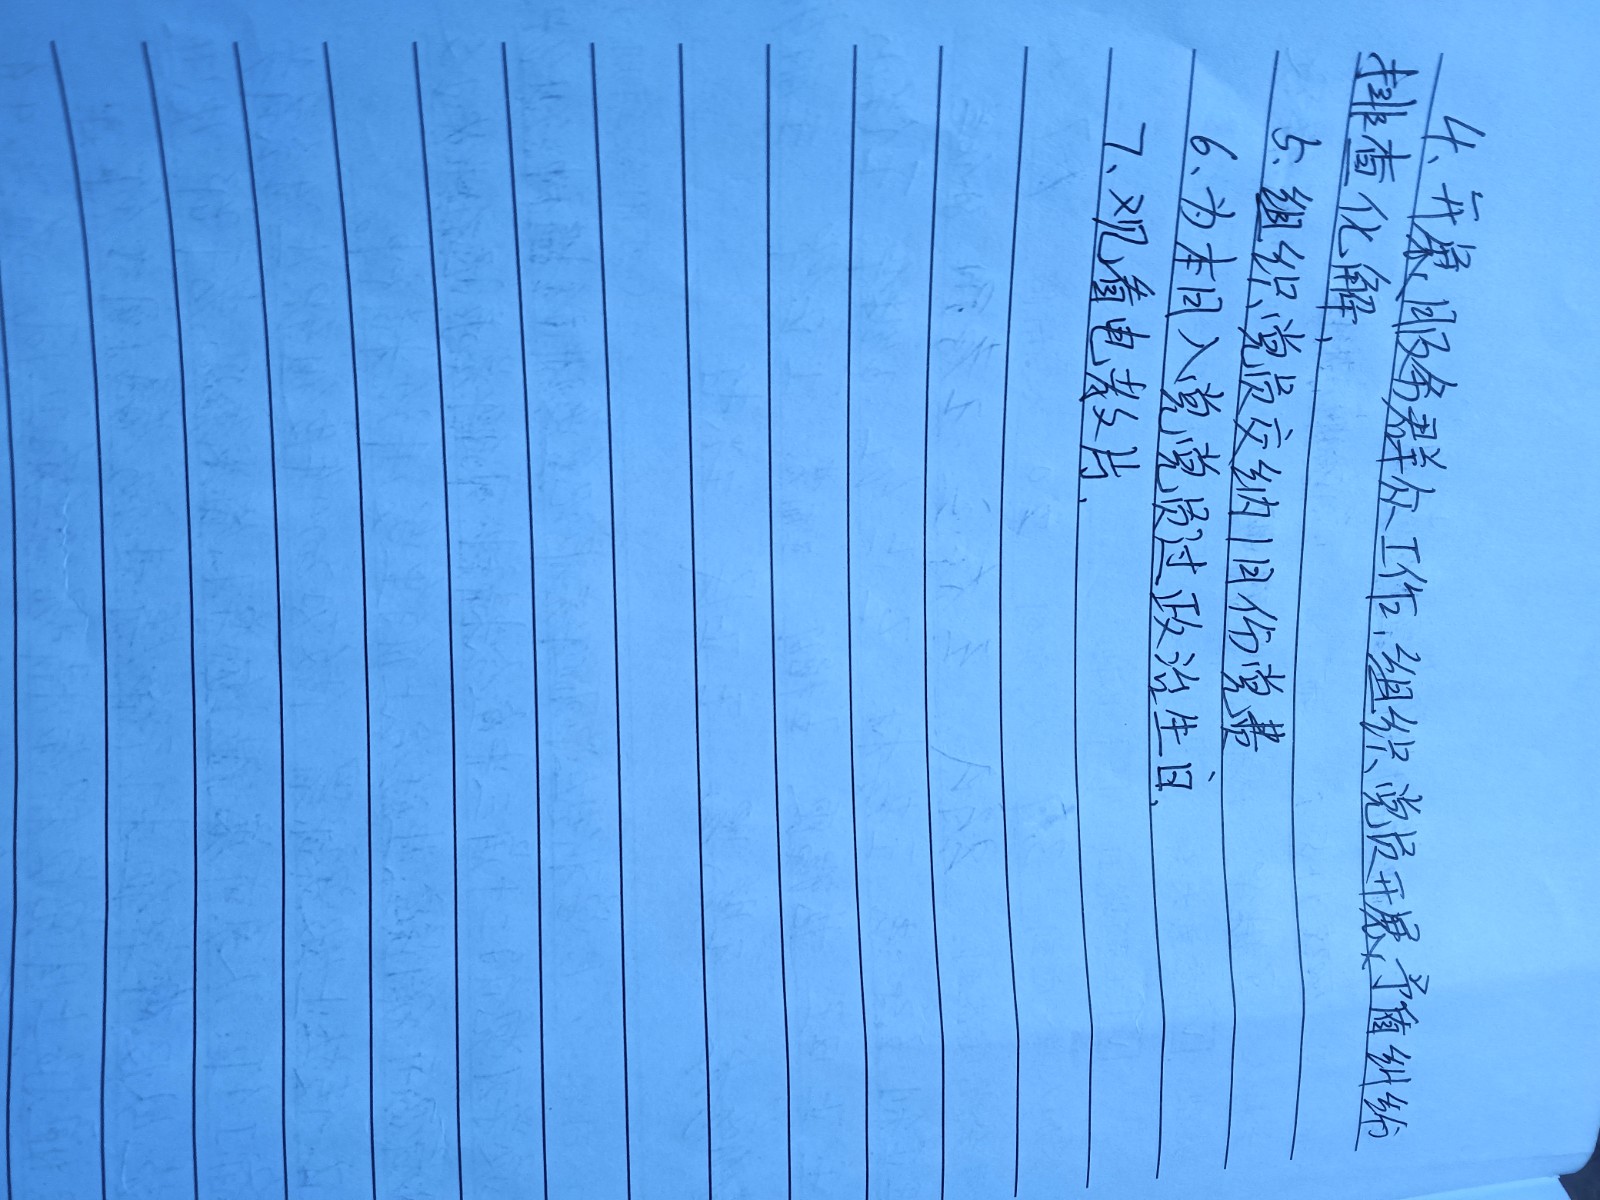 4、开展服务群众工作、组织党员开展矛盾纠纷
排查化解、
5、组织党员交纳1月份党费
6、为本月入党党员过政治生日、
7、观看电教片、